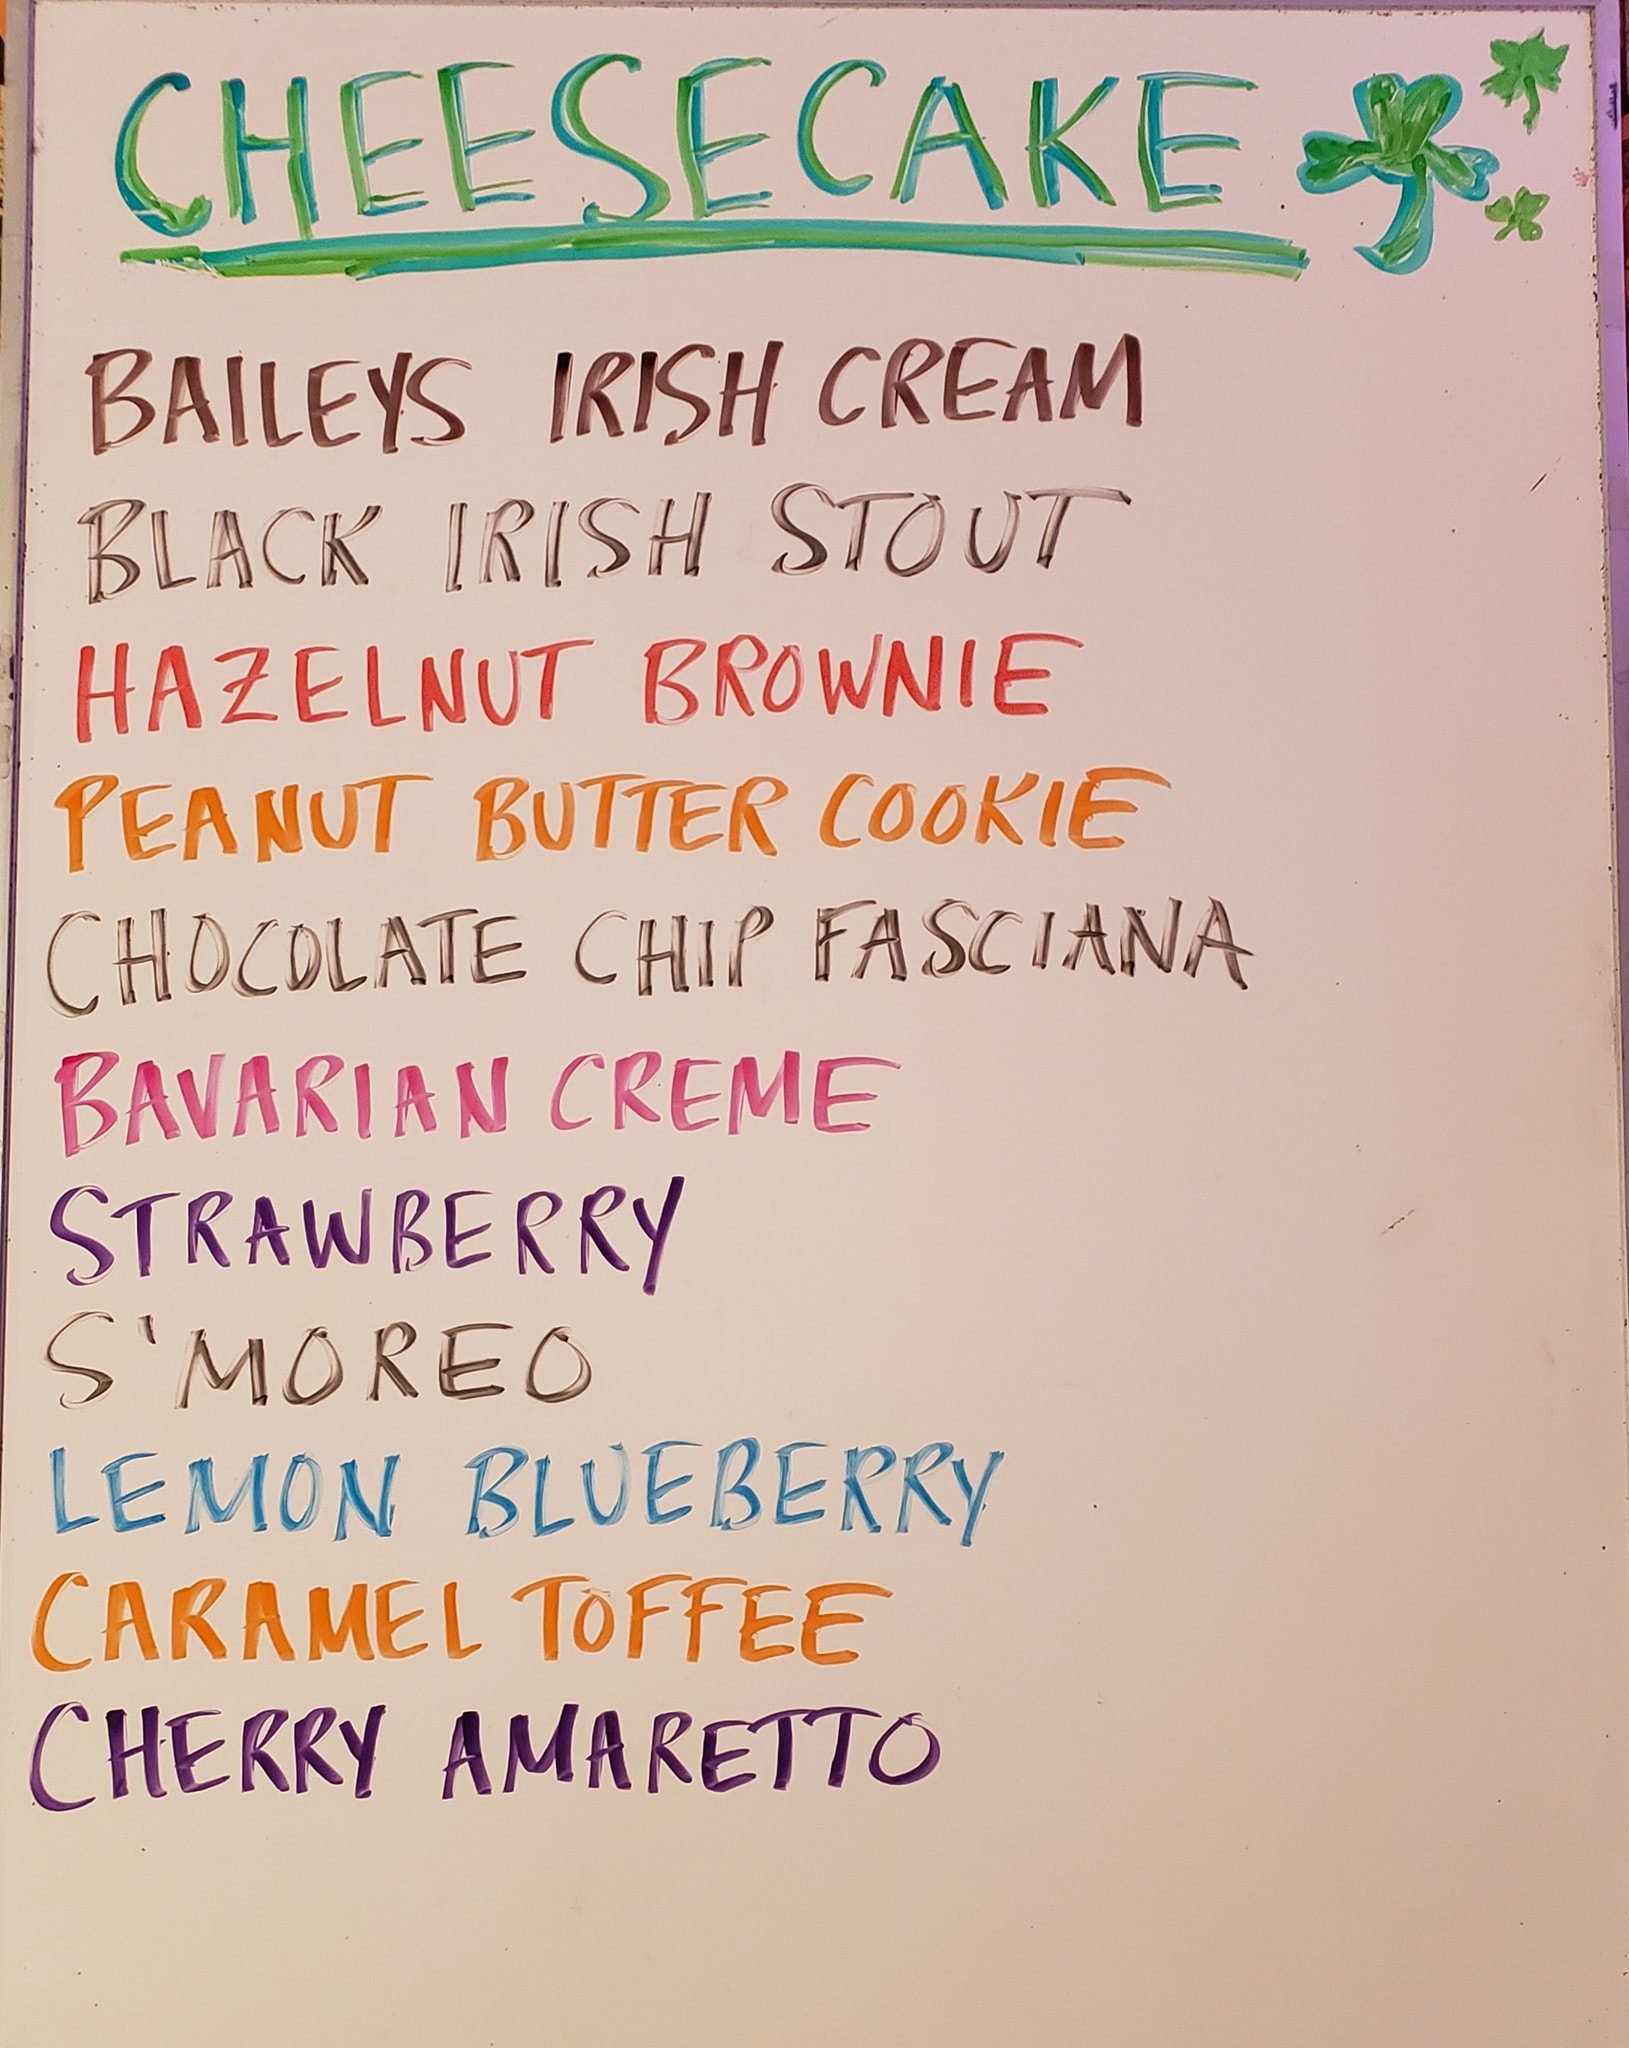 CHEESECAKE
BAILEYS IRISH CREAM
BLACK IRISH STOUT
HAZELNUT BROWNIE
PEANUT BUTTER COOKIE
CHOCOLATE CHIP FASCIANA
BAVARIAN CREME
STRAWBERRY
S'MOREO
LEMON BLUEBERRY
CARAMEL TOFFEE
CHERRY AMARETTO